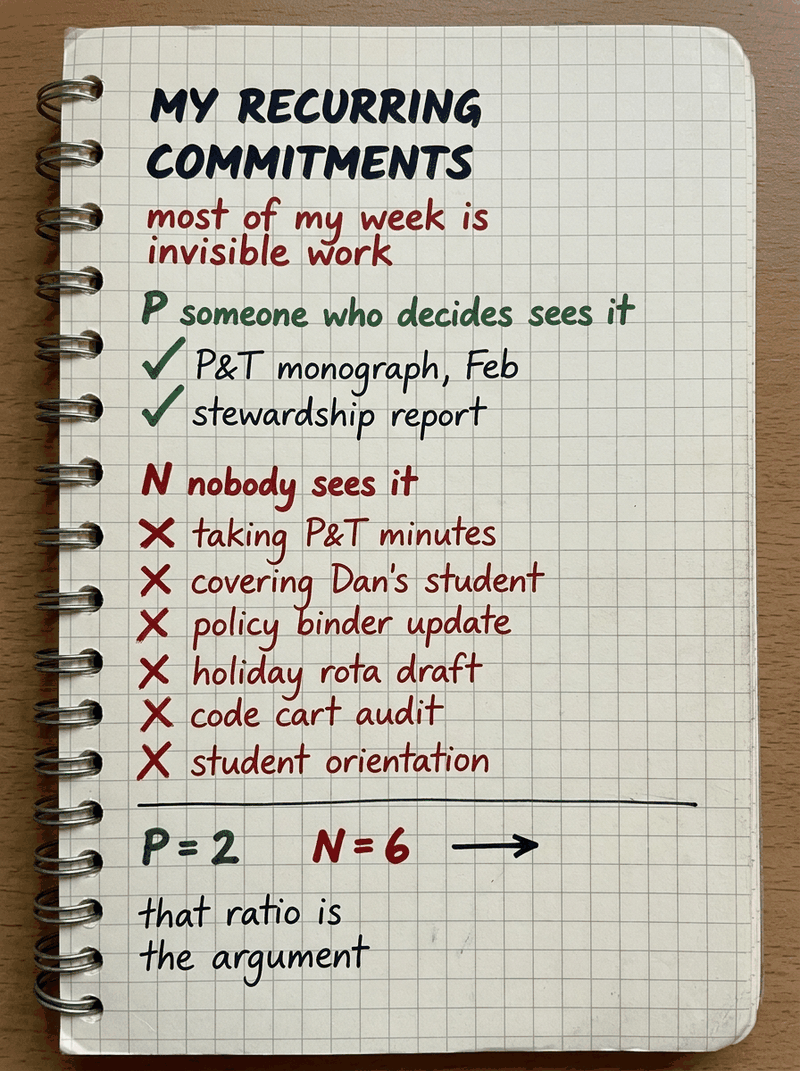 MY RECURRING
COMMITMENTS
most of my week is
invisible work
P someone who decides sees it
✓ P&T monograph, Feb
✓ stewardship report
N nobody sees it
✗ taking P&T minutes
✗ covering Dan's student
✗ policy binder update
✗ holiday rota draft
✗ code cart audit
✗ student orientation
P = 2 N = 6 →
that ratio is
the argument